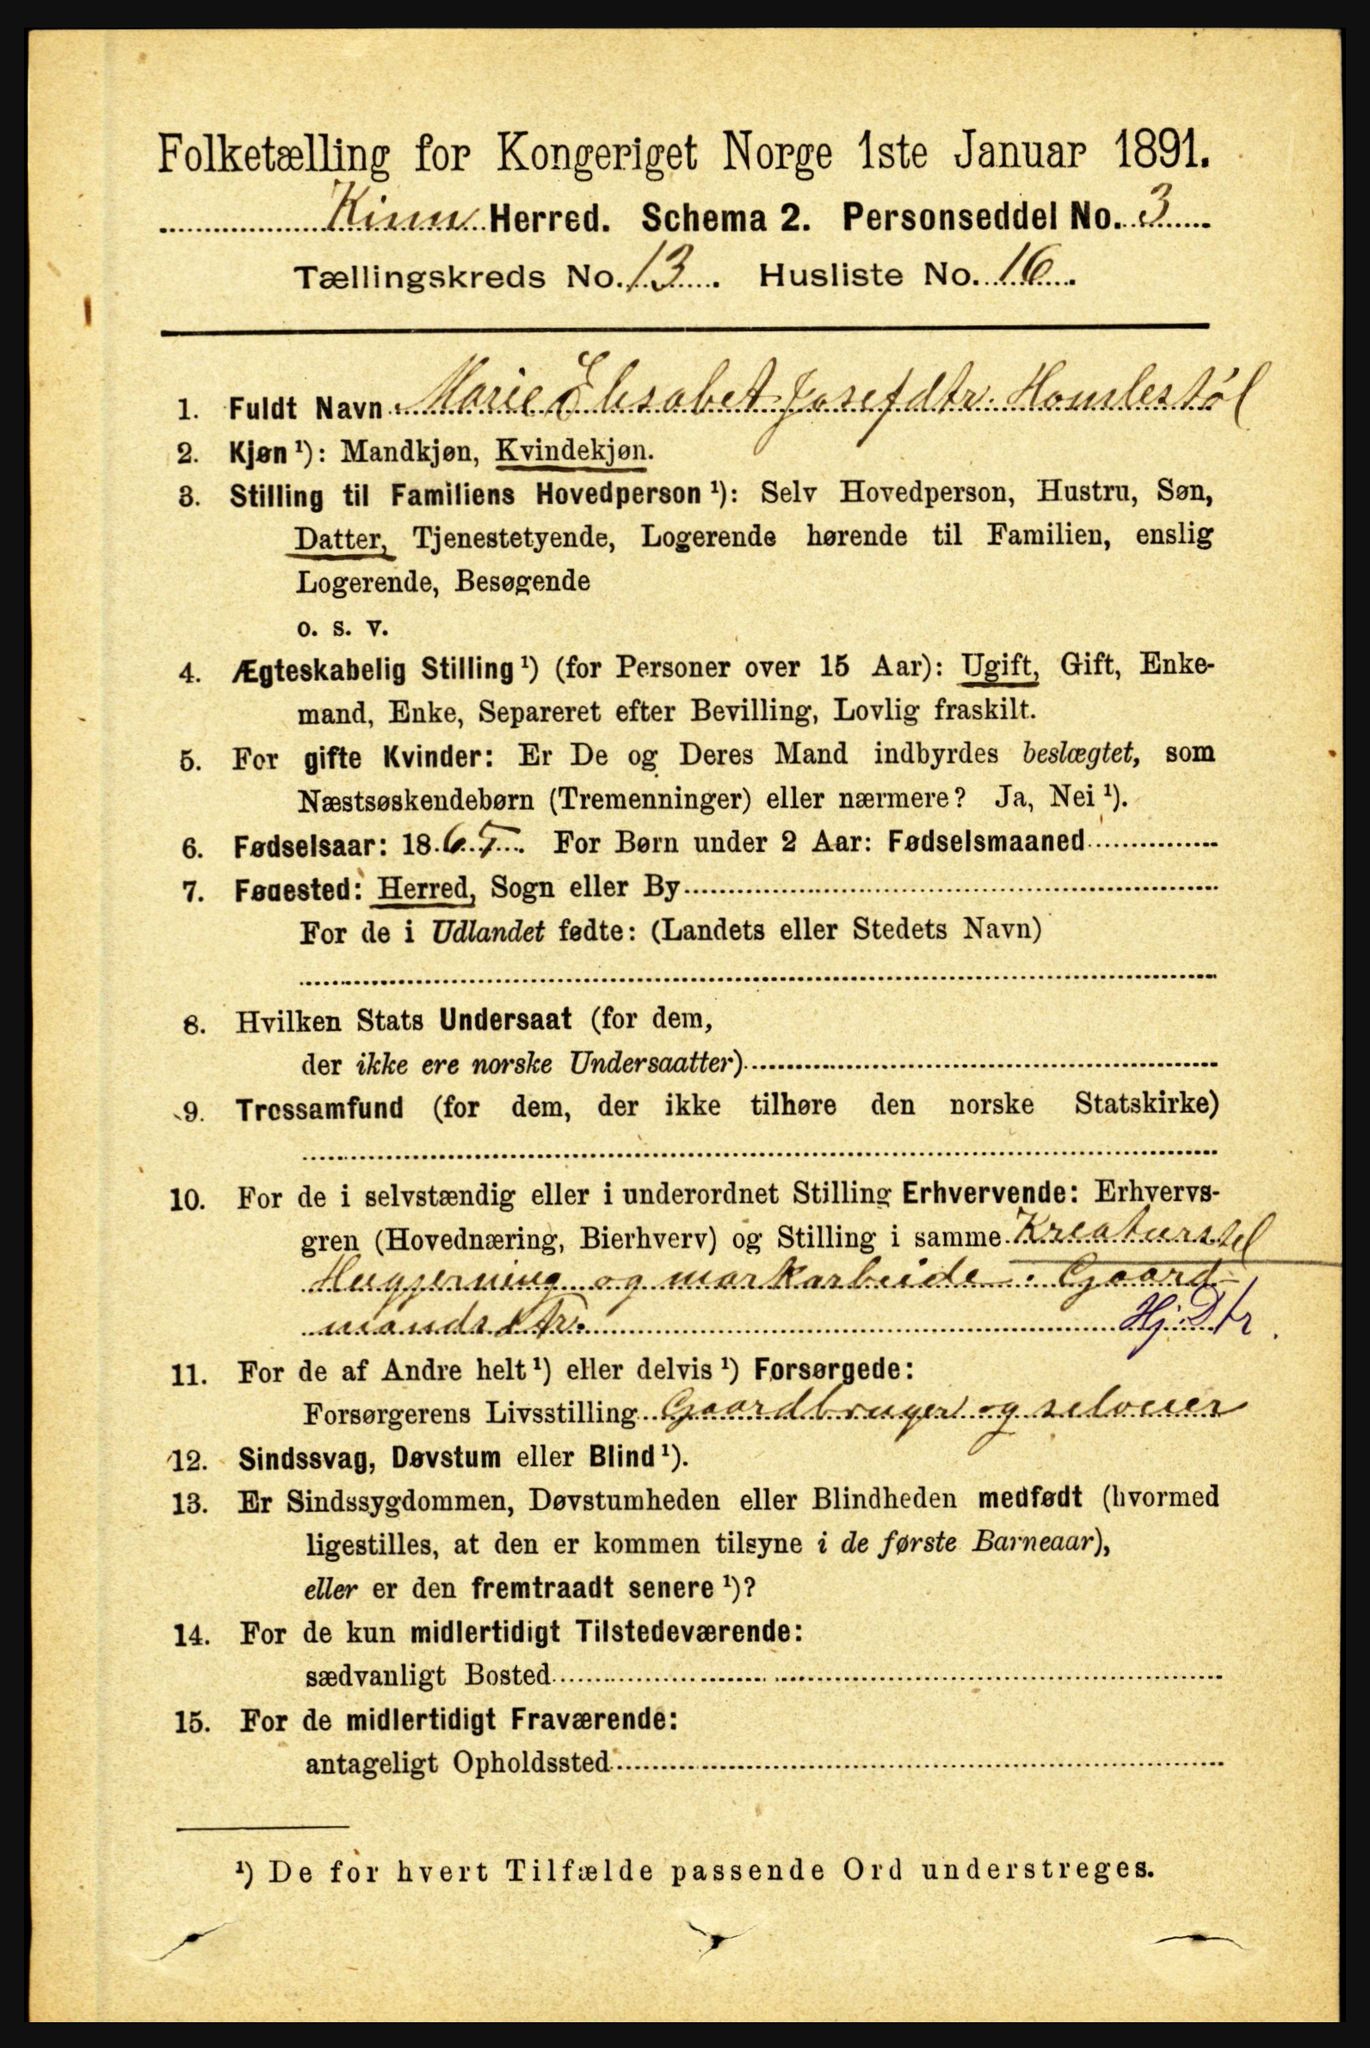 Folketælling for Kongeriget Norge 1ste Januar 1891.
Kinn Herred. Schema 2. Personseddel No. 3
Tællingskreds No. 13. Husliste No. 16.
1. Fuldt Navn Marie Elisabet Josefdtr. Homlestøl
2. Kjøn ¹): Mandkjøn, Kvindekjøn.
3. Stilling til Familiens Hovedperson ¹): Selv Hovedperson, Hustru, Søn,
Datter, Tjenestetyende, Logerende hørende til Familien, enslig
Logerende, Besøgende
o. s. v.
4. Ægteskabelig Stilling ¹) (for Personer over 15 Aar): Ugift, Gift, Enke-
mand, Enke, Separeret efter Bevilling, Lovlig fraskilt.
5. For gifte Kvinder: Er De og Deres Mand indbyrdes beslægtet, som
Næstsøskendebørn (Tremenninger) eller nærmere? Ja, Nei ¹).
6. Fødselsaar: 1865. For Børn under 2 Aar: Fødselsmaaned
7. Fødested: Herred, Sogn eller By
For de i Udlandet fødte: (Landets eller Stedets Navn)
8. Hvilken Stats Undersaat (for dem,
der ikke ere norske Undersaatter)
9. Trossamfund (for dem, der ikke tilhøre den norske Statskirke)
10. For de i selvstændig eller i underordnet Stilling Erhvervende: Erhvervs-
gren (Hovednæring, Bierhverv) og Stilling i samme Kreaturstel
Husgjerning og markarbeide. Gaard-
mandsdtr. Hj. Dtr.
11. For de af Andre helt ¹) eller delvis ¹) Forsørgede:
Forsørgerens Livsstilling Gaardbruger og selveier
12. Sindssvag, Døvstum eller Blind ¹).
13. Er Sindssygdommen, Døvstumheden eller Blindheden medfødt (hvormed
ligestilles, at den er kommen tilsyne i de første Barneaar),
eller er den fremtraadt senere ¹)?
14. For de kun midlertidigt Tilstedeværende:
sædvanligt Bosted
15. For de midlertidigt Fraværende:
antageligt Opholdssted
¹) De for hvert Tilfælde passende Ord understreges.